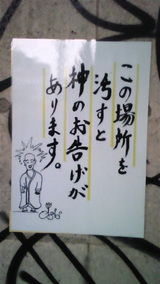 この場所を
汚すと
神のお告げが
あります。